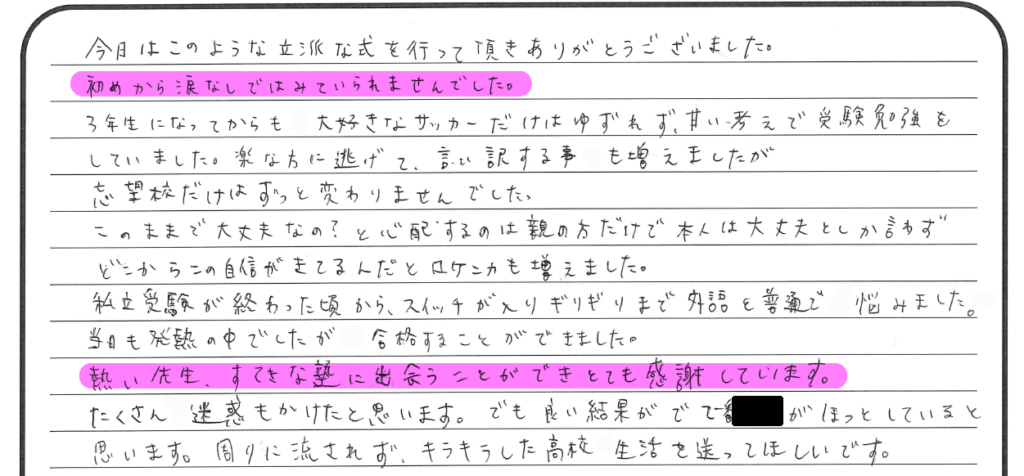 今日はこのような立派な式を行って頂きありがとうございました。
初めから涙なしではみていられませんでした。
3年生になってからも 大好きなサッカーだけはゆずれず、甘い考えで受験勉強を
していました。楽な方に逃げて、言い訳する事 も増えましたが
志望校だけはずっと変わりませんでした。
このままで大丈夫なの?と心配するのは親の方だけで本人は大丈夫としか言わず
どこからこの自信がきてるんだと口ゲンカも増えました。
私立受験が終わった頃から、スイッチが入りギリギリまで外語と普通で 悩みました。
当日も発熱の中でしたが 合格することができました。
熱い先生、すてきな塾に出会うことができとても感謝しています。
たくさん 迷惑もかけたと思います。でも良い結果がでて一番 がほっとしていると
思います。周りに流されず、キラキラした高校 生活を送ってほしいです。